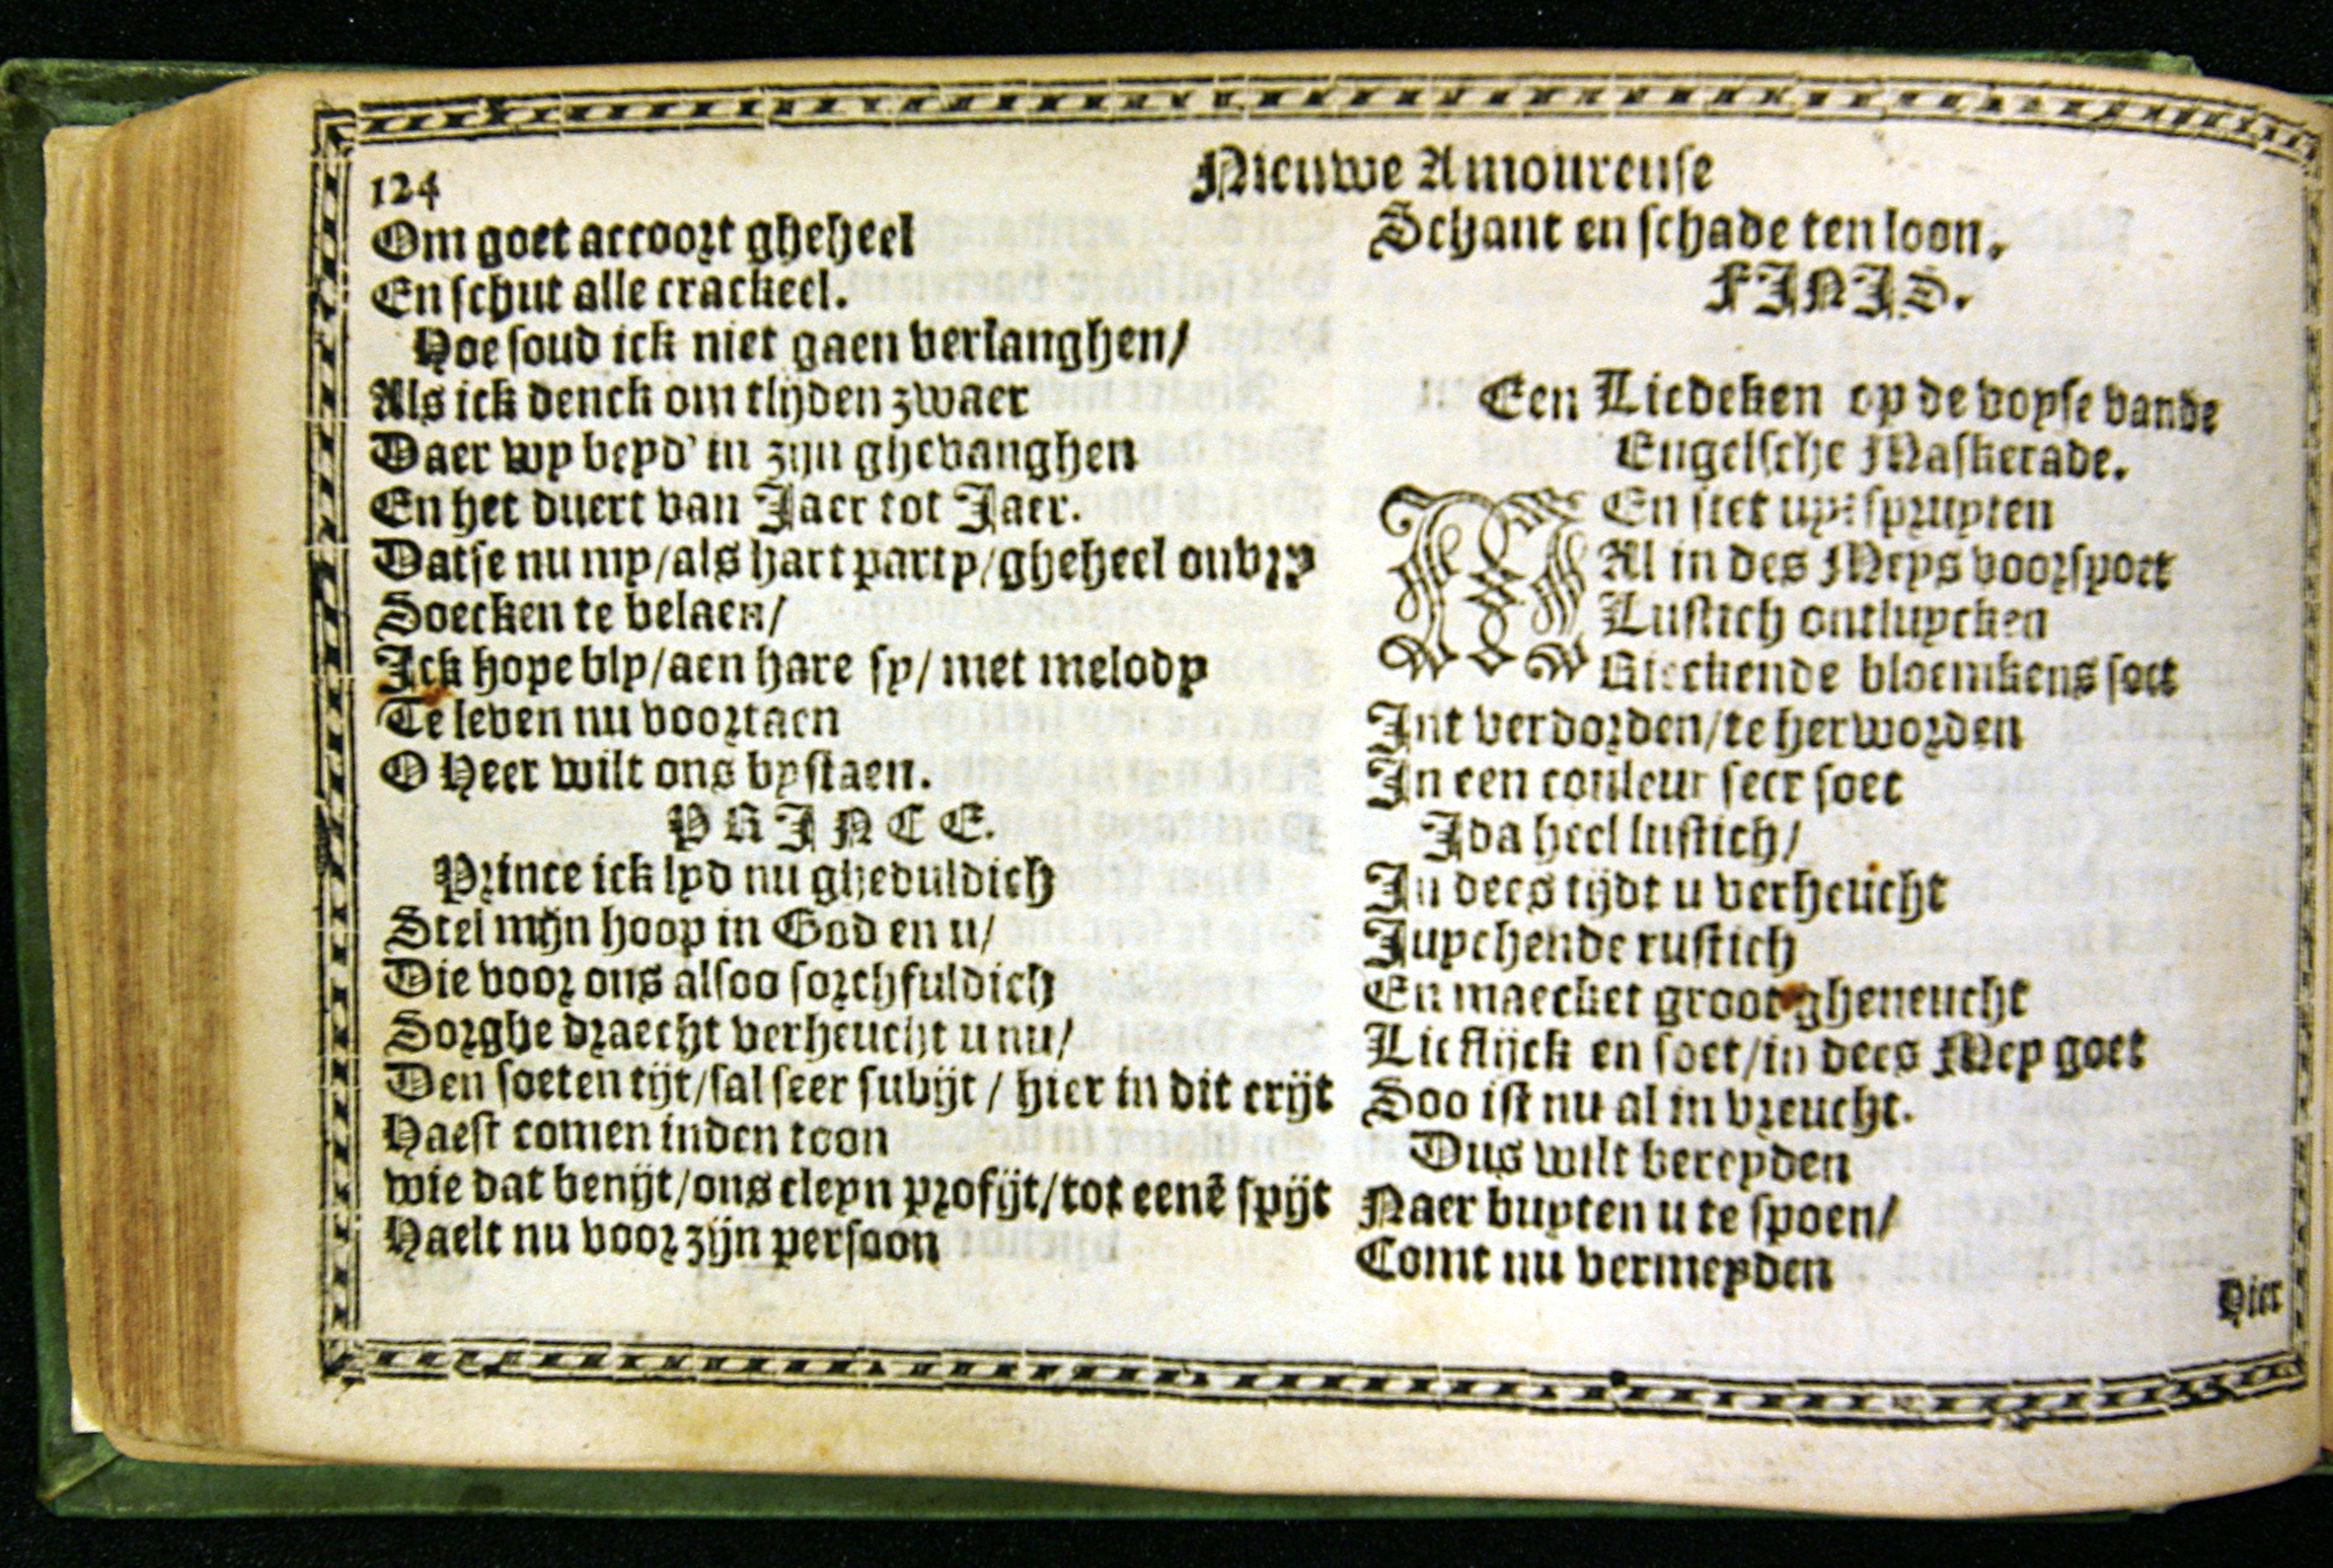 124
Nieuwe Amoureuse
Om goet accoort gheheel
En schut alle crackeel.
Hoe soud ick niet gaen verlanghen/
Als ick denck om tlijden zwaer
Daer wy beyd' in zijn ghevanghen
En het duert van Jaer tot Jaer.
Datse nu my/als hart party/gheheel onvry
Soecken te belaen/
Ick hope bly/aen hare sy/ met melody
Te leven nu voortaen
O Heer wilt ons bystaen.
PRINCE.
Prince ick lyd nu gheduldich
Stel mijn hoop in God en u/
Die voor ons alsoo sorchfuldich
Sorghe draecht verheucht u nu/
Den soeten tijt/sal seer subijt / hier in dit crijt
Haest comen inden toon
wie dat benijt/ons cleyn profijt/tot eenē spijt
Haelt nu voor zijn persoon
Schant en schade ten loon.
FINIS.
Een Liedeken op de voyse vande
Engelsche Maskerade.
MEn siet uyt spruyten
Al in des Meys voorspoet
Lustich ontluycken
Rieckende bloemkens soet
Int verdorden/te herworden
In een couleur seer soet
Ida heel lustich/
In dees tijdt u verheucht
Juychende rustich
En maecket groot gheneucht
Lieflijck en soet/in dees Mey goet
Soo ist nu al in vreucht.
Dus wilt bereyden
Naer buyten u te spoen/
Comt nu vermeyden
Hier